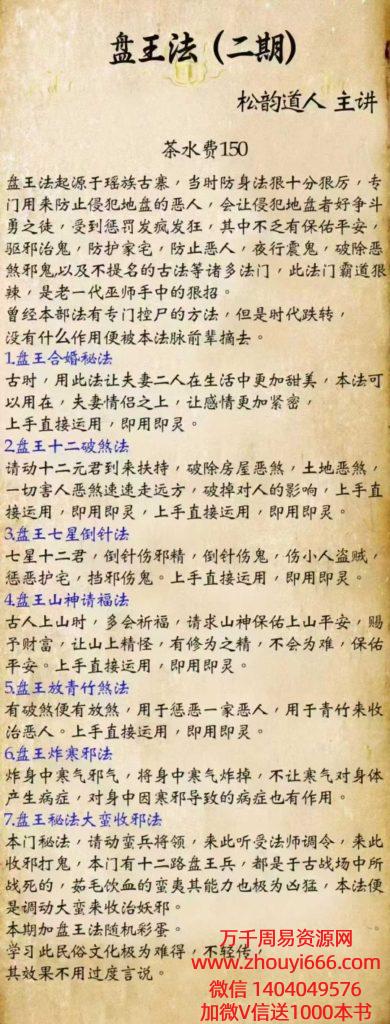 盘王法（二期）
松韵道人 主讲
茶水费150
盘王法起源于瑶族古寨，当时防身法狠十分狠厉，专
门用来防止侵犯地盘的恶人，会让侵犯地盘者好争斗
勇之徒，受到惩罚发疯发狂，其中不乏有保佑平安，
驱邪治鬼，防护家宅，防止恶人，夜行震鬼，破除恶
煞邪鬼以及不提名的古法等诸多法门，此法门霸道狠
辣，是老一代巫师手中的狠招。
曾经本部法有专门控尸的方法，但是时代跌转，
没有什么作用便被本法脉前辈摘去。
1.盘王合婚秘法
古时，用此法让夫妻二人在生活中更加甜美，本法可
以用在，夫妻情侣之上，让感情更加紧密，
上手直接运用，即用即灵。
2.盘王十二破煞法
请动十二元君到来扶持，破除房屋恶煞，土地恶煞，
一切害人恶煞速速走远方，破掉对人的影响，上手直
接运用，即用即灵，上手直接运用，即用即灵。
3.盘王七星倒针法
七星十二君，倒针伤邪精，倒针伤鬼，伤小人盗贼，
惩恶护宅，挡邪伤鬼。上手直接运用，即用即灵。
4.盘王山神请福法
古人上山时，多会祈福，请求山神保佑上山平安，赐
予财富，让山上精怪，有修为之精，不会为难，保佑
平安。上手直接运用，即用即灵。
5.盘王放青竹煞法
有破煞便有放煞，用于惩恶一家恶人，用于青竹来收
治恶人。上手直接运用，即用即灵。
6.盘王炸寒邪法
炸身中寒气邪气，将身中寒气炸掉，不让寒气对身体
产生病症，对身中因寒邪导致的病症也有作用。
7.盘王秘法大蛮收邪法
本门秘法，请动蛮兵将领，来此听受法师调令，来此
收邪打鬼，本门有十二路盘王兵，都是于古战场中所
战死的，茹毛饮血的蛮夷其能力也极为凶猛，本法便
是调动大蛮来收治妖邪。
本期加盘王法随机彩蛋。
学习此民俗文化极为难得，不轻传，
其效果不用过度言说。
万千周易资源网
www.zhouyi666.com
微信 1404049576
加微V信送1000本书